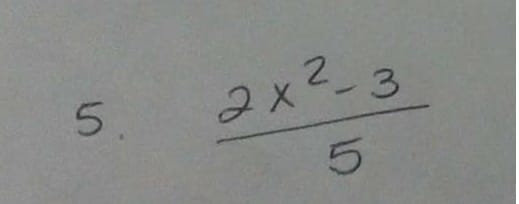 5. \frac{2x^2-3}{5}